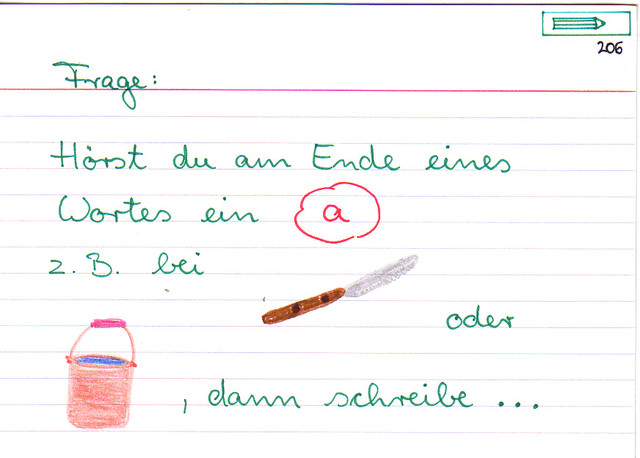 206
Frage:
Hörst du am Ende eines
Wortes ein a
z. B. bei
oder
, dann schreibe ...